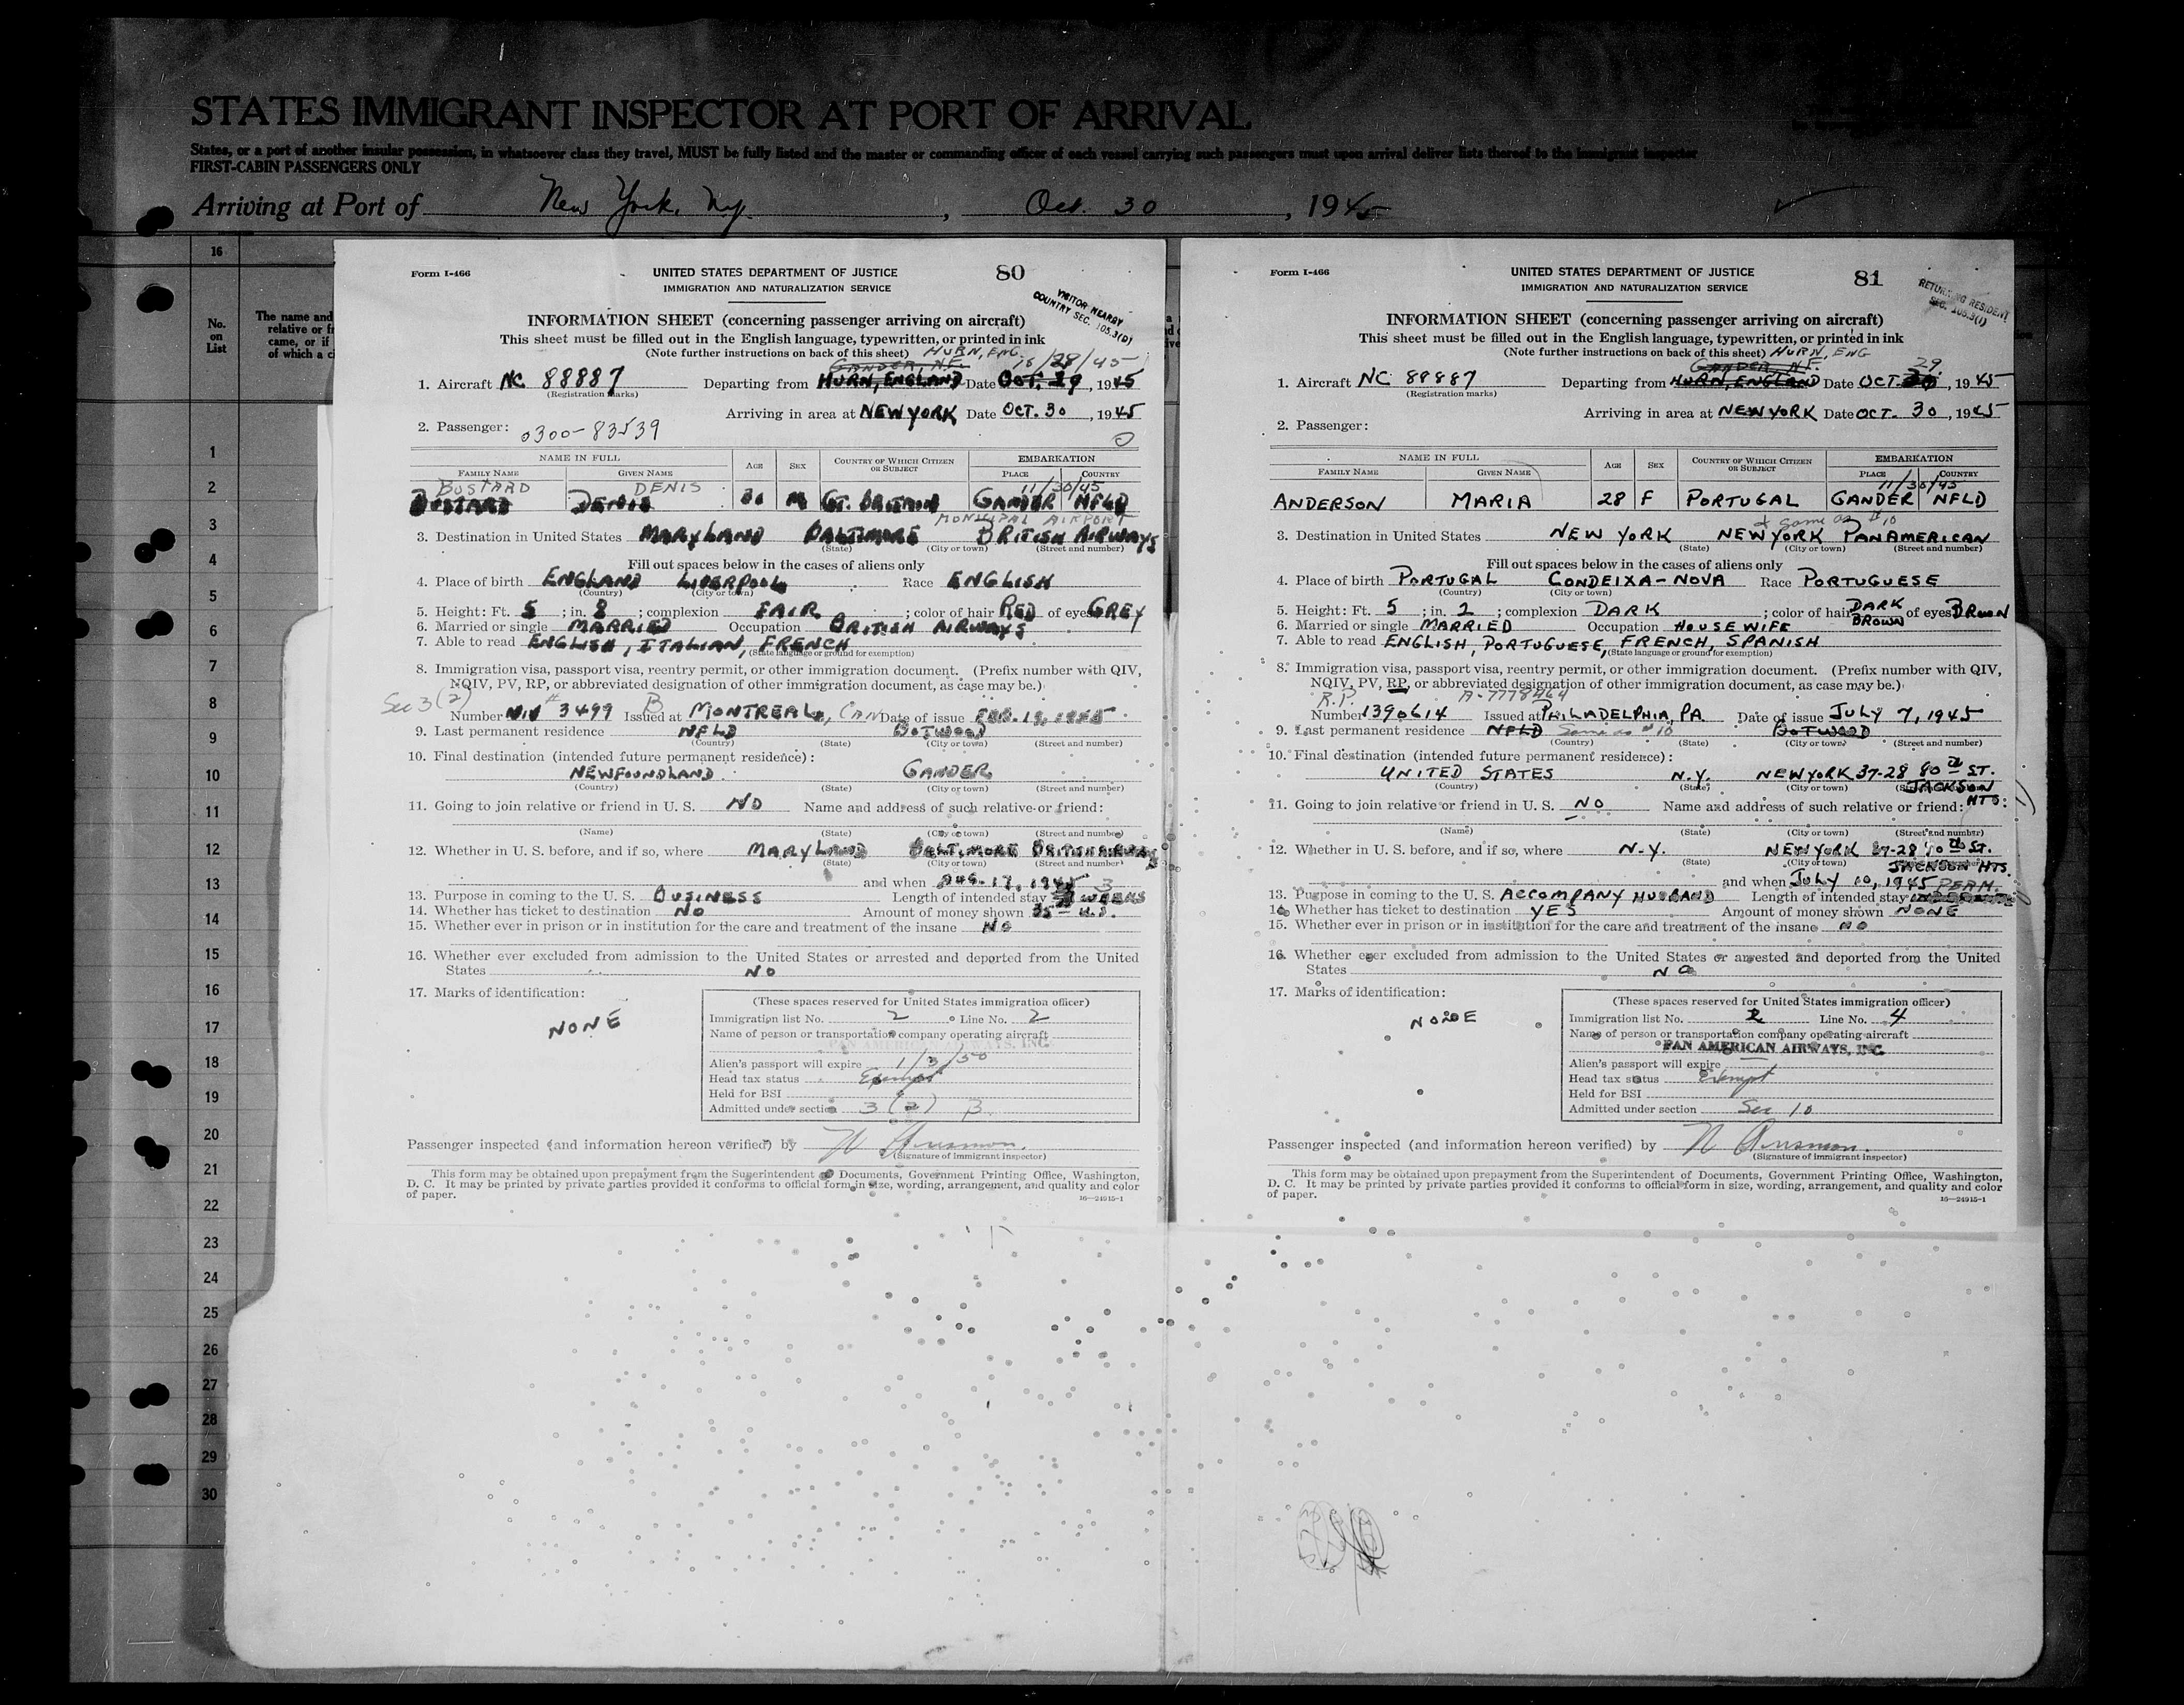 STATES IMMIGRANT INSPECTOR AT PORT OF ARRIVAL
States, or a port of another insular possession, in whatsoever class they travel, MUST be fully listed and the master or commanding officer of each vessel carrying such passengers must upon arrival deliver lists thereof to the immigrant inspector
FIRST-CABIN PASSENGERS ONLY
Arriving at Port of New York, N.Y. , Oct. 30 , 1945
16
No. on List
The name and
relative or fr
came, or if
of which a ci
1
2
3
4
5
6
7
8
9
10
11
12
13
14
15
16
17
18
19
20
21
22
23
24
25
26
27
28
29
30
Form I-466
UNITED STATES DEPARTMENT OF JUSTICE
80
IMMIGRATION AND NATURALIZATION SERVICE
VISITOR NEARBY
COUNTRY SEC. 105.3(D)
INFORMATION SHEET (concerning passenger arriving on aircraft)
This sheet must be filled out in the English language, typewritten, or printed in ink
(Note further instructions on back of this sheet) HURN, ENG.
GANDER, N.F. /28/45
1. Aircraft NC 88887 Departing from HURN, ENGLAND Date OCT. 29, 1945
(Registration marks)
Arriving in area at NEW YORK Date OCT. 30, 1945
2. Passenger: 0300-83539
NAME IN FULL AGE SEX COUNTRY OF WHICH CITIZEN OR SUBJECT EMBARKATION
FAMILY NAME GIVEN NAME PLACE COUNTRY
BUSTARD DENIS 11/30/45
BUSTARD DENIS 30 M GT. BRITAIN GANDER NFLD
MUNICIPAL AIRPORT
3. Destination in United States MARYLAND BALTIMORE BRITISH AIRWAYS
(State) (City or town) (Street and number)
Fill out spaces below in the cases of aliens only
4. Place of birth ENGLAND LIVERPOOL Race ENGLISH
(Country) (City or town)
5. Height: Ft. 5 ; in. 8 ; complexion FAIR ; color of hair RED of eyes GREY
6. Married or single MARRIED Occupation BRITISH AIRWAYS
7. Able to read ENGLISH, ITALIAN, FRENCH
(State language or ground for exemption)
8. Immigration visa, passport visa, reentry permit, or other immigration document. (Prefix number with QIV,
NQIV, PV, RP, or abbreviated designation of other immigration document, as case may be.)
Sec 3(2) B
Number NIV # 3499 Issued at MONTREAL, CAN Date of issue FEB. 19, 1945
9. Last permanent residence NFLD BOTWOOD
(Country) (State) (City or town) (Street and number)
10. Final destination (intended future permanent residence):
NEWFOUNDLAND GANDER
(Country) (State) (City or town) (Street and number)
11. Going to join relative or friend in U. S. NO Name and address of such relative or friend:
(Name) (State) (City or town) (Street and number)
12. Whether in U. S. before, and if so, where MARYLAND BALTIMORE BRITISH AIRWAYS
(State) (City or town) (Street and number)
and when AUG. 17, 1945 3
13. Purpose in coming to the U. S. BUSINESS Length of intended stay WEEKS
14. Whether has ticket to destination NO Amount of money shown 35 — U.S.
15. Whether ever in prison or in institution for the care and treatment of the insane NO
16. Whether ever excluded from admission to the United States or arrested and deported from the United
States NO
17. Marks of identification:
NONE
(These spaces reserved for United States immigration officer)
Immigration list No. 2 Line No. 2
Name of person or transportation company operating aircraft
PAN AMERICAN AIRWAYS, INC.
Alien's passport will expire 1/3/50
Head tax status Exempt
Held for BSI
Admitted under section 3 (2) B.
Passenger inspected (and information hereon verified) by
(Signature of immigrant inspector)
This form may be obtained upon prepayment from the Superintendent of Documents, Government Printing Office, Washington,
D. C. It may be printed by private parties provided it conforms to official form in size, wording, arrangement, and quality and color
of paper.
16—24915-1
Form I-466
UNITED STATES DEPARTMENT OF JUSTICE
81
IMMIGRATION AND NATURALIZATION SERVICE
RETURNING RESIDENT
SEC. 105.3(1)
INFORMATION SHEET (concerning passenger arriving on aircraft)
This sheet must be filled out in the English language, typewritten, or printed in ink
(Note further instructions on back of this sheet) HURN, ENG
GANDER, N.F. 29
1. Aircraft NC 88887 Departing from HURN, ENGLAND Date OCT. 30, 1945
(Registration marks)
Arriving in area at NEW YORK Date OCT. 30, 1945
2. Passenger:
NAME IN FULL AGE SEX COUNTRY OF WHICH CITIZEN OR SUBJECT EMBARKATION
FAMILY NAME GIVEN NAME PLACE COUNTRY
11/30/45
ANDERSON MARIA 28 F PORTUGAL GANDER NFLD
same as #10
3. Destination in United States NEW YORK NEW YORK PAN AMERICAN
(State) (City or town) (Street and number)
Fill out spaces below in the cases of aliens only
4. Place of birth PORTUGAL CONDEIXA-NOVA Race PORTUGUESE
(Country) (City or town)
5. Height: Ft. 5 ; in. 2 ; complexion DARK ; color of hair DARK BROWN of eyes BROWN
6. Married or single MARRIED Occupation HOUSEWIFE
7. Able to read ENGLISH, PORTUGUESE, FRENCH, SPANISH
(State language or ground for exemption)
8. Immigration visa, passport visa, reentry permit, or other immigration document. (Prefix number with QIV,
NQIV, PV, RP, or abbreviated designation of other immigration document, as case may be.)
R.P. A-7778464
Number 1390614 Issued at PHILADELPHIA, PA. Date of issue JULY 7, 1945
9. Last permanent residence NFLD Same as #10 BOTWOOD
(Country) (State) (City or town) (Street and number)
10. Final destination (intended future permanent residence):
UNITED STATES N.Y. NEW YORK 37-28 80TH ST.
JACKSON HTS.
(Country) (State) (City or town) (Street and number)
11. Going to join relative or friend in U. S. NO Name and address of such relative or friend:
(Name) (State) (City or town) (Street and number)
12. Whether in U. S. before, and if so, where N.Y. NEW YORK 37-28 80TH ST.
(State) (City or town) JACKSON HTS.
and when JULY 10, 1945 PERM.
13. Purpose in coming to the U. S. ACCOMPANY HUSBAND Length of intended stay
14. Whether has ticket to destination YES Amount of money shown NONE
15. Whether ever in prison or in institution for the care and treatment of the insane NO
16. Whether ever excluded from admission to the United States or arrested and deported from the United
States NO
17. Marks of identification:
NONE
(These spaces reserved for United States immigration officer)
Immigration list No. 2 Line No. 4
Name of person or transportation company operating aircraft
PAN AMERICAN AIRWAYS, INC.
Alien's passport will expire
Head tax status Exempt
Held for BSI
Admitted under section Sec 10
Passenger inspected (and information hereon verified) by
(Signature of immigrant inspector)
This form may be obtained upon prepayment from the Superintendent of Documents, Government Printing Office, Washington,
D. C. It may be printed by private parties provided it conforms to official form in size, wording, arrangement, and quality and color
of paper.
16—24915-1